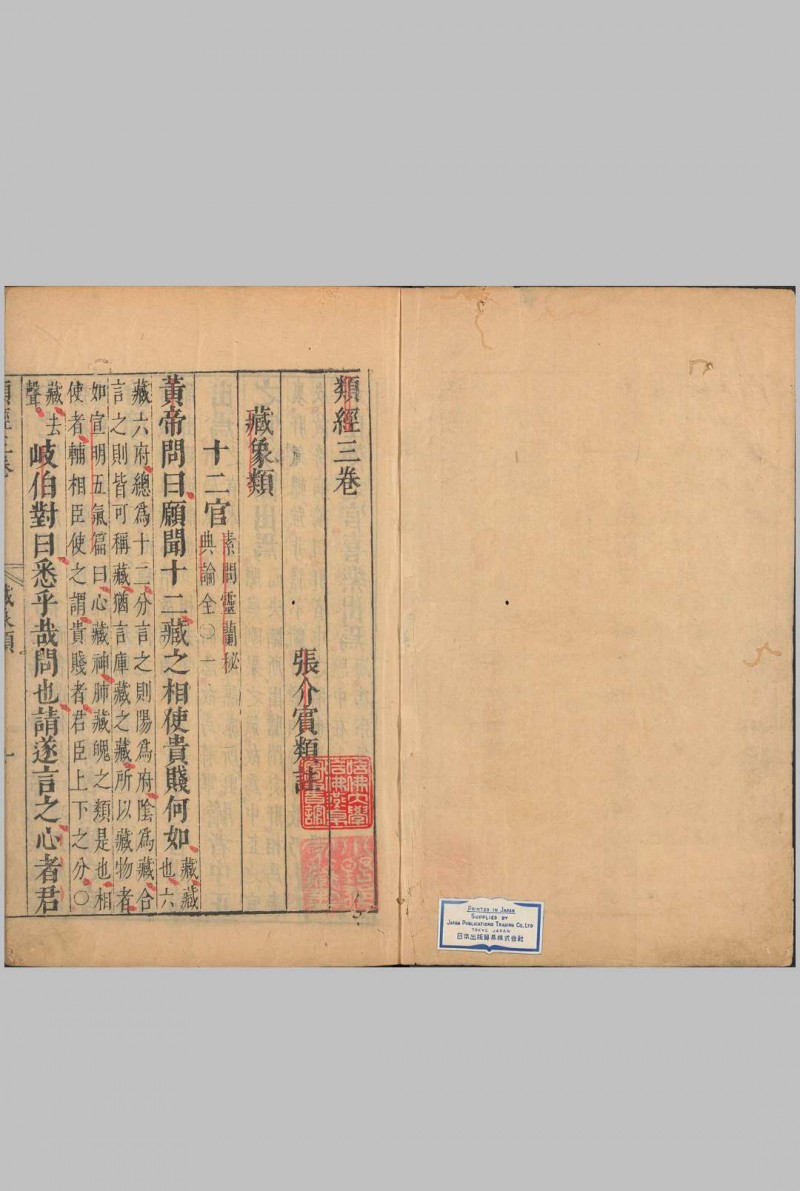 類經三卷
張介賓類註
藏象類
十二官
素問靈蘭秘
典論全〇一
黃帝問曰願聞十二藏之相使貴賤何如
藏藏
也六
藏六府總爲十二分言之則陽爲府陰爲藏合
言之則皆可稱藏猶言庫藏之藏所以藏物者
如宣明五氣篇曰心藏神肺藏魄之類是也相
使者輔相臣使之謂貴賤者君臣上下之分〇
藏去
聲
岐伯對曰悉乎哉問也請遂言之心者君
藏象類
一
哈佛大學
PRINTED IN JAPAN
SUPPLIED BY
JAPAN PUBLICATIONS TRADING CO., LTD
TOKYO JAPAN
日本出版貿易株式会社